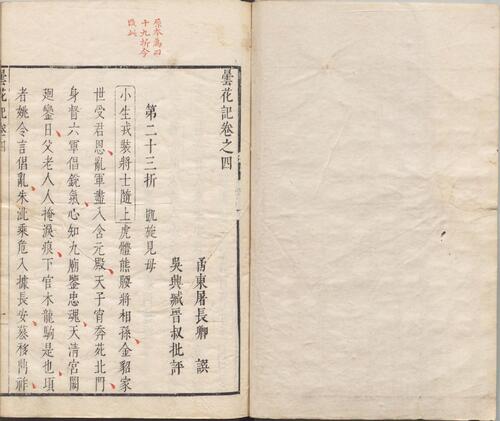 原本為四
十九折今
改此
曇花記卷之四
甬東屠長卿 譔
吳興臧晉叔批評
第二十三折 凱旋見母
小生戎裝將士隨上虎體熊腰將相孫金貂家
世受君恩亂軍盡入含元殿天子宵奔苑北門
身督六軍倡銳氣心知九廟鑒忠魂天清宮闕
廻鑾日父老人人掩淚痕下官木龍駒是也頃
者姚令言倡亂朱泚乘危入據長安暴移𨷖祚
曇花記卷四
一